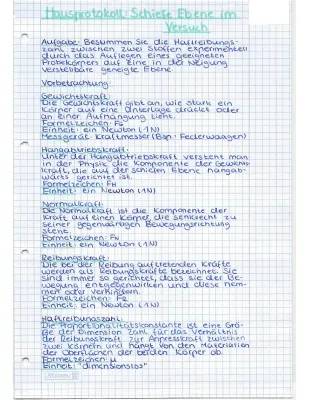 Hausprotokoll Schiefe Ebene im
Versuch
Aufgabe: Bestimmen Sie die Haftreibungs-
zahl zwischen zwei Stoffen experimentell
durch das Auflegen eines geeigneten
Probekörpers auf eine in der Neigung
verstellbare geneigte Ebene.
Vorbetrachtung:
Gewichtskraft:
Die Gewichtskraft gibt an, wie stark ein
Körper auf eine Unterlage drückt oder
an einer Aufhängung zieht.
Formelzeichen: FG
Einheit: ein Newton (1N)
Messgerät: Kraftmesser (Bsp.: Federwaagen)
Hangabtriebskraft:
Unter der Hangabtriebskraft versteht man
in der Physik die Komponente der Gewichts-
kraft, die auf der schiefen Ebene hangab-
wärts gerichtet ist.
Formelzeichen: FH
Einheit: ein Newton (1N)
Normalkraft:
Die Normalkraft ist die Komponente der
Kraft auf einen Körper, die senkrecht zu
seiner gegenwärtigen Bewegungsrichtung
steht.
Formelzeichen: FN
Einheit: ein Newton (1N)
Reibungskraft:
Die bei der Reibung auftretenden Kräfte
werden als Reibungskräfte bezeichnet. Sie
sind immer so gerichtet, dass sie der Be-
wegung entgegenwirken und diese hem-
men oder verhindern.
Formelzeichen: FR
Einheit: ein Newton (1N)
Haftreibungszahl:
Die Proportionalitätskonstante ist eine Grö-
ße der Dimension Zahl für das Verhältnis
der Reibungskraft zur Anpresskraft zwischen
zwei Körpern und hängt von den Materialien
der Oberflächen der beiden Körper ab.
Formelzeichen: µ
Einheit: "dimensionslos"